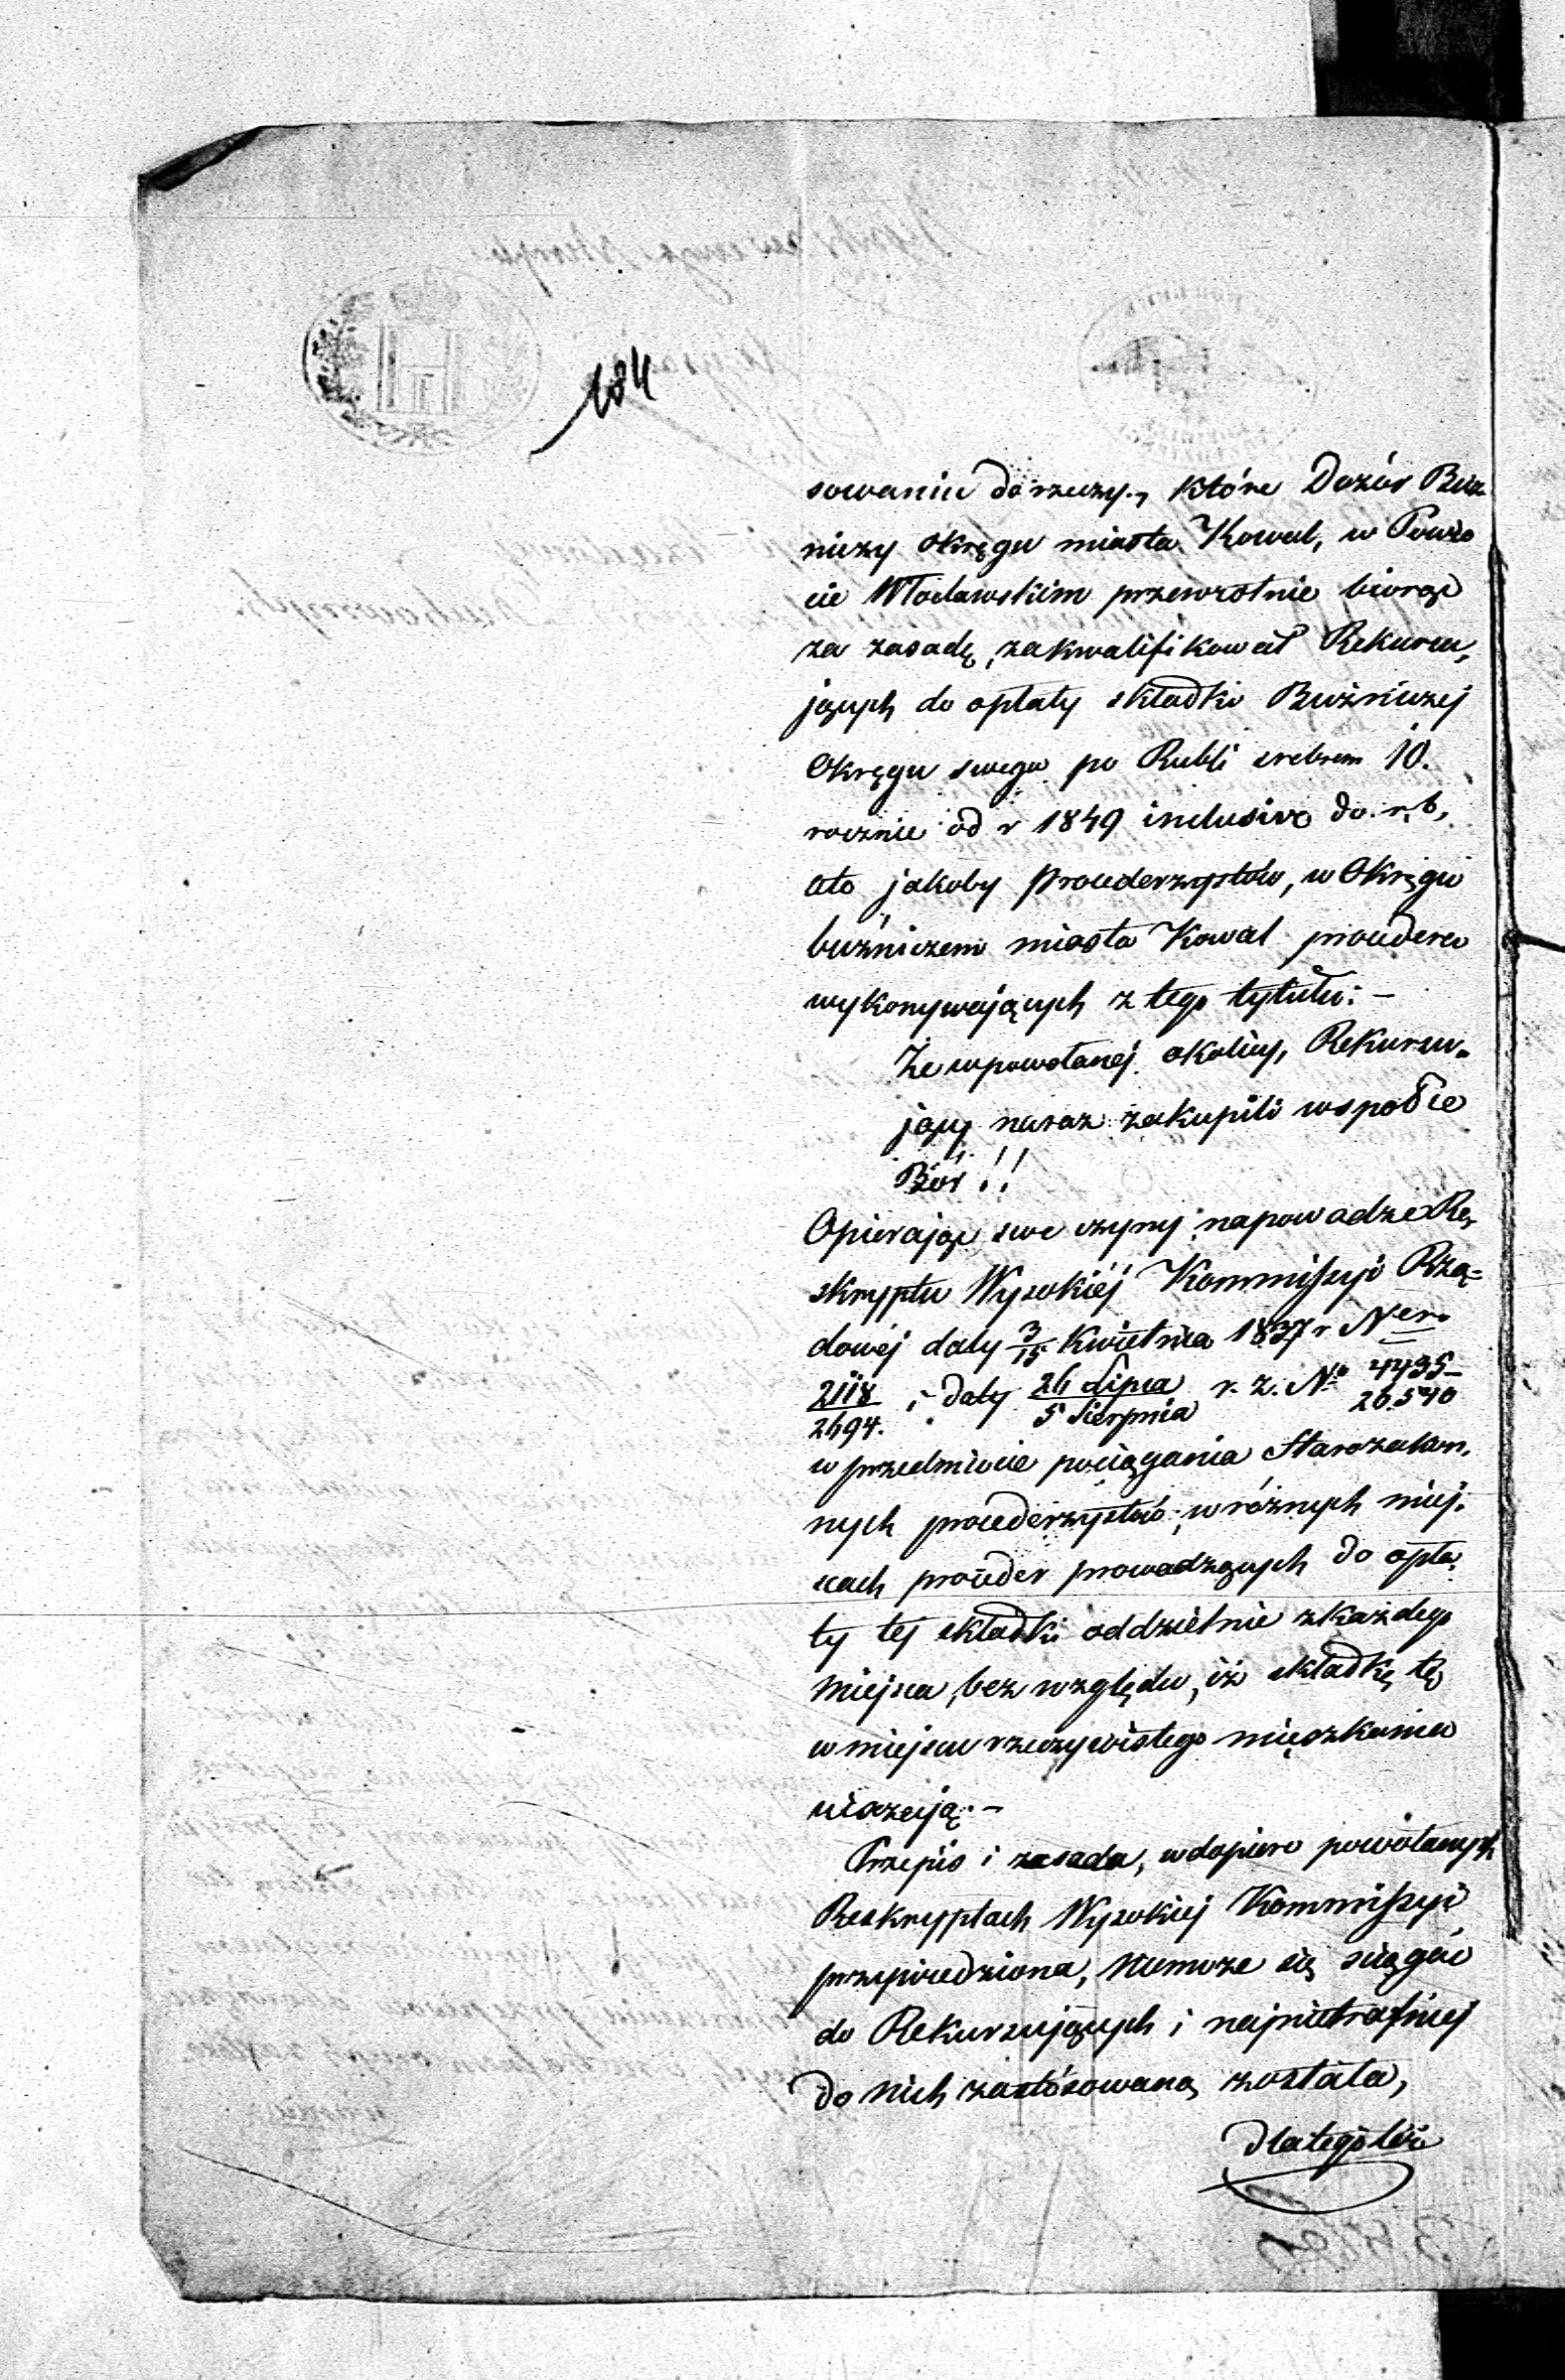 184
sowaniu do rzeczy, które Dozór Buż
niczy Okręgu miasta Kowal, w Powie
cie Włocławskim przewrotnie biorąc
za zasadę, zakwalifikował Rekuru,
jących do opłaty składki Bużniczej
Okręgu swego po Rubli srebrem 10.
rocznie od r 1849 inclusive do r. b,
ato jakoby Procederzystów, w Okręgu
bużniczem miasta Kowal proceder
wykonywających z tego tytułu: –
Że w powołanej okolicy, Rekurru-
jący naraz zakupili wspólnie
Bór!!
Opierając swe czyny na powadze Re,
skryptu Wysokiéj Kommissyi Rzą=
dowéj daty 3/15 Kwietnia 1837 r Ner.
2118/2694. i daty 26 Lipca/5 Sierpnia r. z. No 4495/26.540
w przedmiocie pociągania Starozakon,
nych procederzystów, w różnych miej.
scach proceder prowadzących do opła,
ty tej składki oddzielnie z każdego
miejsca, bez względu, iż składkę tę
w miejscu rzeczywistego mięszkania
uiszczają. –
Przepis i zasada, w dopiero powołanych
Reskryptach Wysokiej Kommissyi
przepowiedziona, niemoże się ściągać
do Rekurrujących i najnietrafniej
do nich zastósowaną została,
Dlategoteż